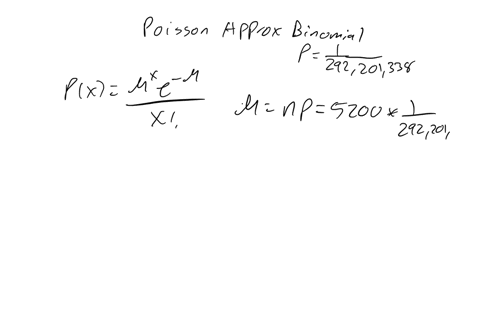 Poisson Approx Binomial
P = 1/292,201,338
P(x) = μ^x e^-μ / x!
μ = np = 5200 * 1/292,201,